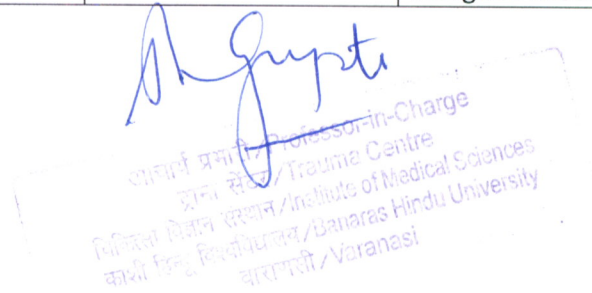 Gupta
आचार्य प्रभारी/Professor-in-Charge
ट्रामा सेंटर/Trauma Centre
चिकित्सा विज्ञान संस्थान/Institute of Medical Sciences
काशी हिन्दू विश्वविद्यालय/Banaras Hindu University
वाराणसी/Varanasi